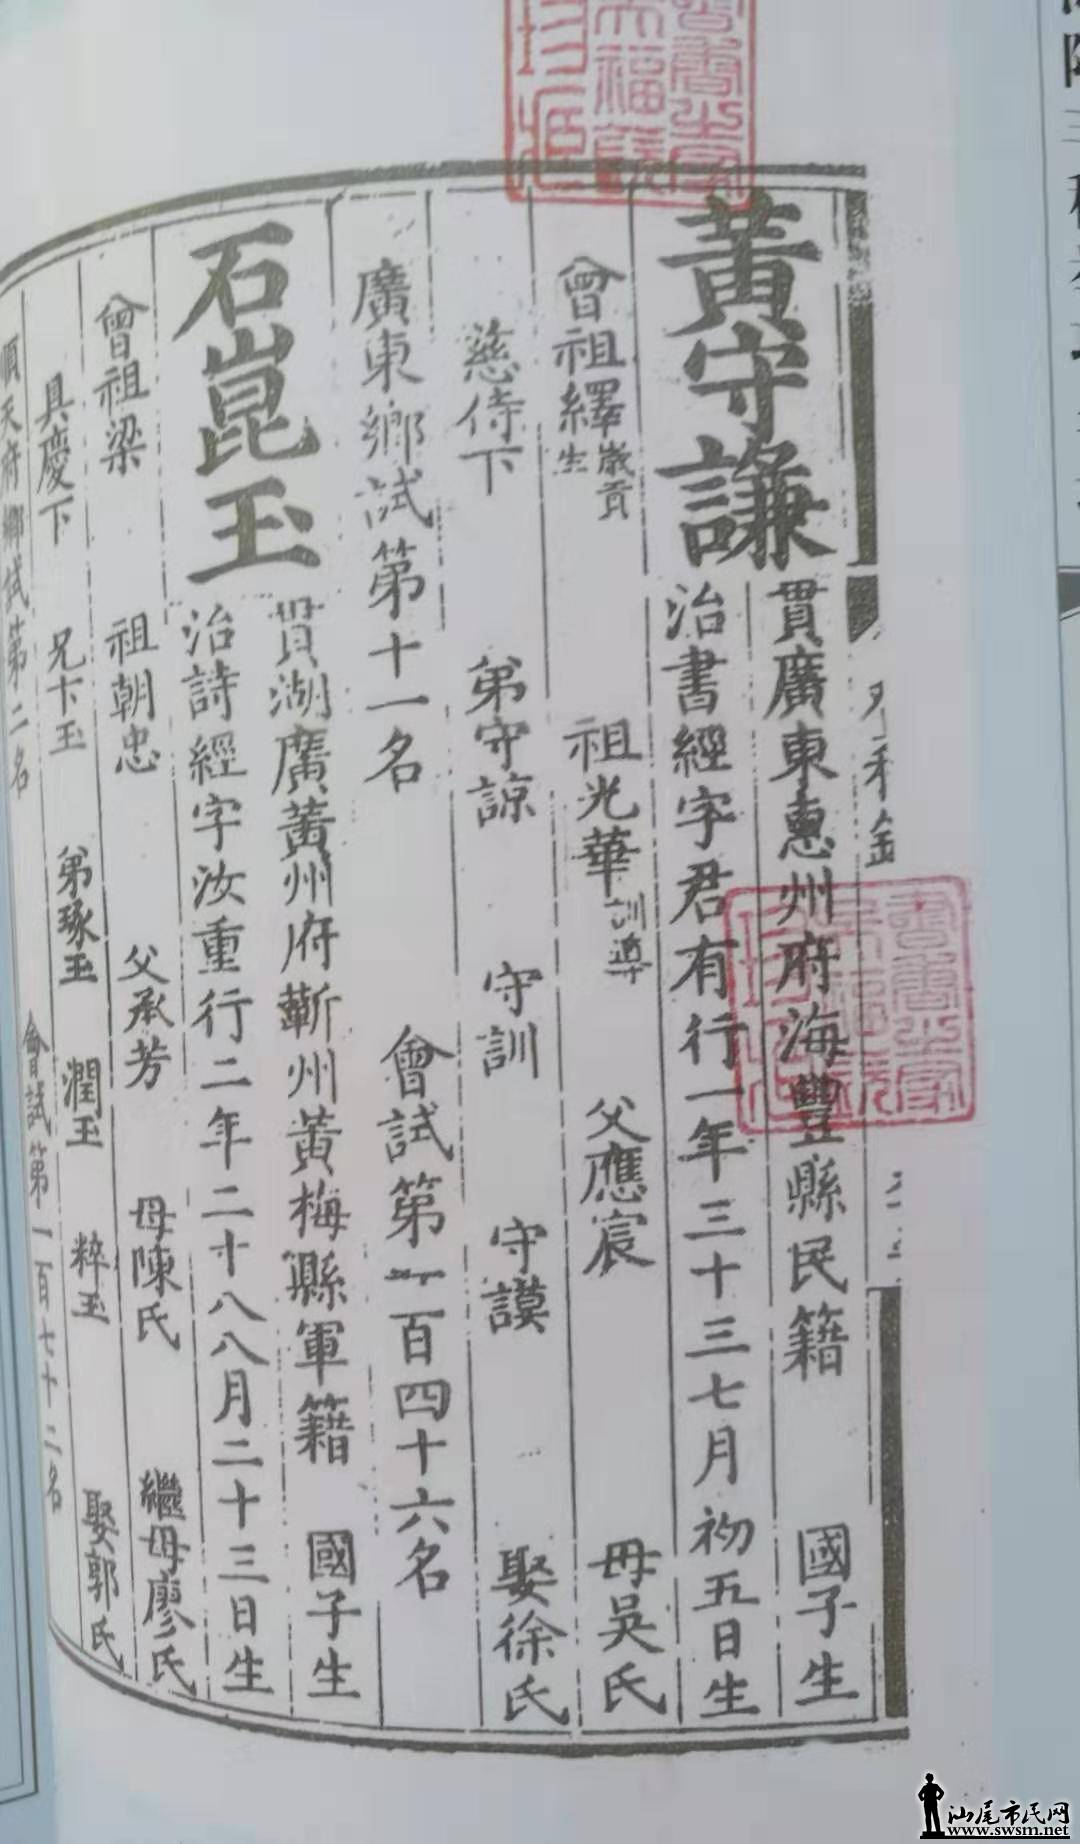 黃守謙
貫廣東惠州府海豐縣民籍 國子生
治書經字君有行一年三十三七月初五日生
曾祖繹歲貢生 祖光華訓導 父應宸 母吳氏
慈侍下 弟守諒 守訓 守謨 娶徐氏
廣東鄉試第十一名 會試第一百四十六名
石崑玉
貫湖廣黃州府蘄州黃梅縣軍籍 國子生
治詩經字汝重行二年二十八八月二十三日生
曾祖梁 祖朝忠 父承芳 母陳氏 繼母廖氏
具慶下 兄卞玉 弟琢玉 潤玉 粹玉 娶郭氏
順天府鄉試第二名 會試第一百七十二名
汕尾市民网
www.swsm.net